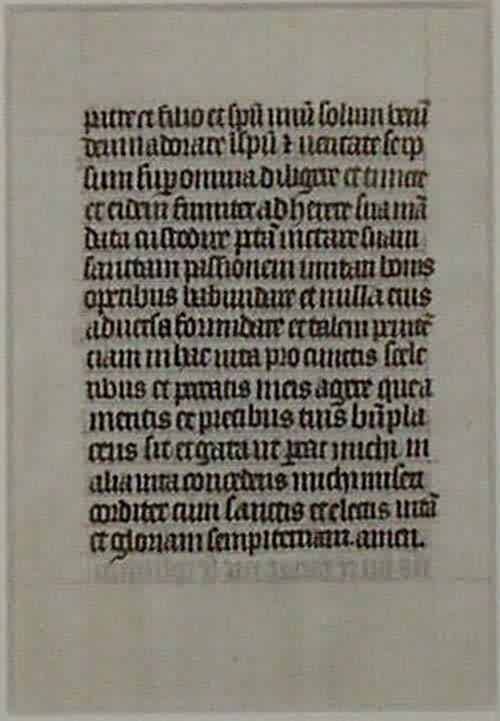 patre et filio et spū unū solum deū
deum adorare i spū ⁊ ueritate se ip
sum sup omnia diligere et timere
et eidem firmiter adherere sua mā
data custodire pctā uitare suam
sanctam passionem imitari bonis
operibus habundare et nulla eius
aduersa formidare et talem penitē
ciam in hac uita pro cunctis scele
ribus et peccatis meis agere que a
mentis et precibus tuis bn̄ pla
cens sit et grata ut pcat michi in
alia uita concedens michi misera
corditer cum sanctis et electis uitā
et gloriam sempiternam. amen.